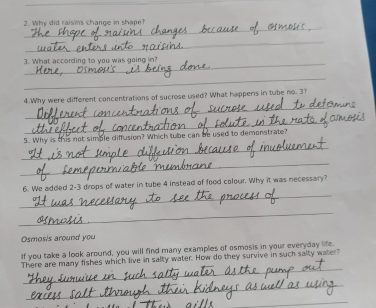 2. Why did raisins change in shape?
The shape of raisins changes because of osmosis,
water enters into raisins.
3. What according to you was going in?
Here, osmosis is being done
4.Why were different concentrations of sucrose used? What happens in tube no. 3?
Different concentrations of sucrose used to determine
the effect of concentration of solute in the rate of osmosis
5. Why is this not simple diffusion? Which tube can be used to demonstrate?
It is not simple diffusion because of involuement
of semepermiable membrane
6. We added 2-3 drops of water in tube 4 instead of food colour. Why it was necessary?
It was necessary to see the process of
osmosis.
Osmosis around you
If you take a look around, you will find many examples of osmosis in your everyday life.
There are many fishes which live in salty water. How do they survive in such salty water?
They survive in such salty water as the pump out
excess salt through their kidneys as well as using
their gills